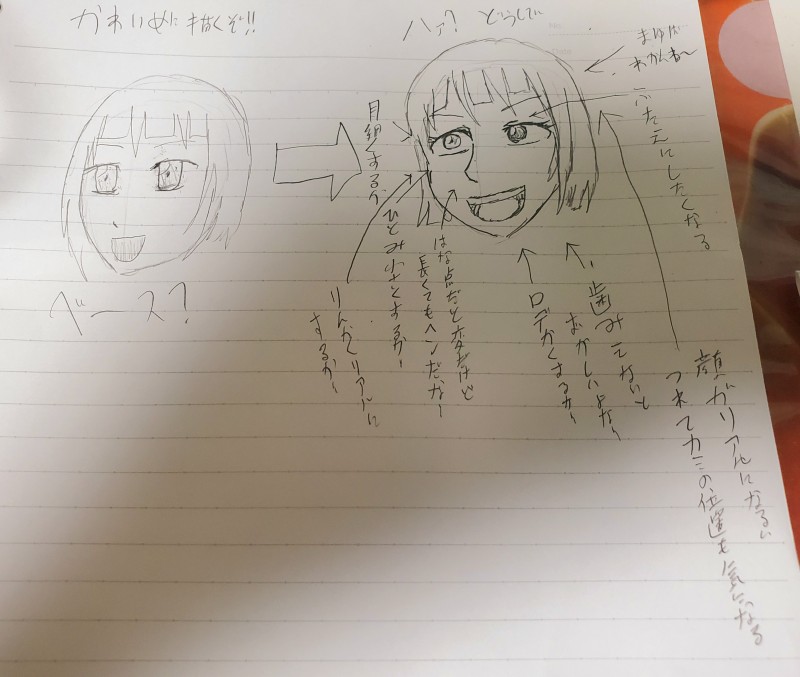 かわいめに描くぞ!!
ベース?
ハァ? どうして
まゆげ
わかんねー
ふた元にしたくなる
目細くするか
ひとみ小さくするかー
りんかくリアルに
するかー
はな点だと変だけど
長くてもヘンだなー
口デかくするかー
歯みてないと
おかしいよなー
顔がリアルになるい
つれてカミの位置も気になる